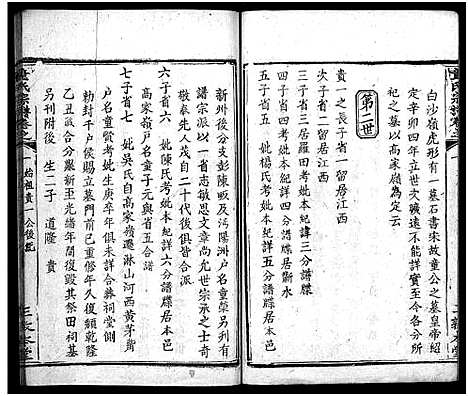 白沙嶺虎形有一墓石書宋故童公之墓皇帝紹
定辛卯四年立世次曠遠不可得而詳實至今各分所
祀之墓以高家嶺為定云
第二世
貴一之長子省一留居江西
次子省二留居江西
三子省三考妣本紀詳三分譜牒
四子省四考妣本紀詳四分譜牒居蘄水
五子省五 妣楊氏考妣本紀詳五分譜牒居本邑
新州後分支彭陳畈及沔陽洲户名童榮另列有
譜宗派以一省志敏思文章尚允世宗承之士奇
敬奉先人茂自二十代後俱皆合派
六子省六 妣陳氏考妣本紀詳六分譜牒居本邑
七子省七 妣吳氏自高家嶺遷淋山河西黄茅嶺
高家嶺户名童子元與省五合譜
户名童賢考妣生庚卒年俱未詳合葬祠堂側
勅封千户侯賜立墓門前已重修年久復頹乾隆
乙丑啟合分嚴新至光譜年間復毀其祭田祠
另刊附後 生二子 道隆 貴
童氏宗譜卷之
始祖貴一公後紀